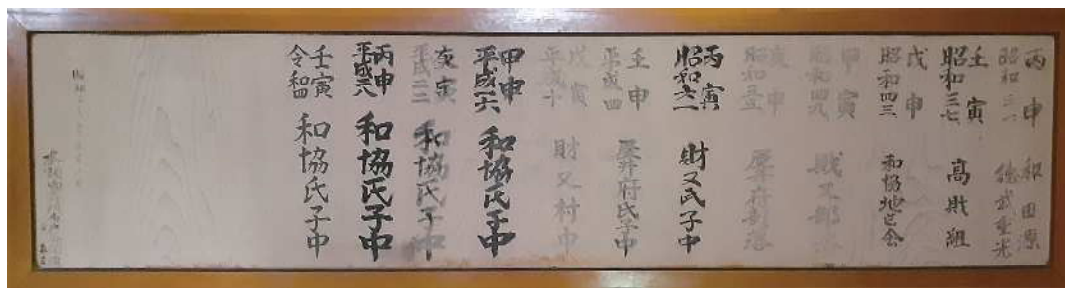 丙申
昭和三一
和田原
壬寅
昭和三七
高財組
戊申
昭和四三
和協地区会
甲寅
昭和四九
財又部
庚申
昭和五五
丙寅
昭和六一
財又氏子中
壬申
平成四
府氏子中
戊寅
平成十
財又村中
甲申
平成一六
和協氏子中
庚寅
平成二二
和協氏子中
丙申
平成二八
和協氏子中
壬寅
令和四
和協氏子中